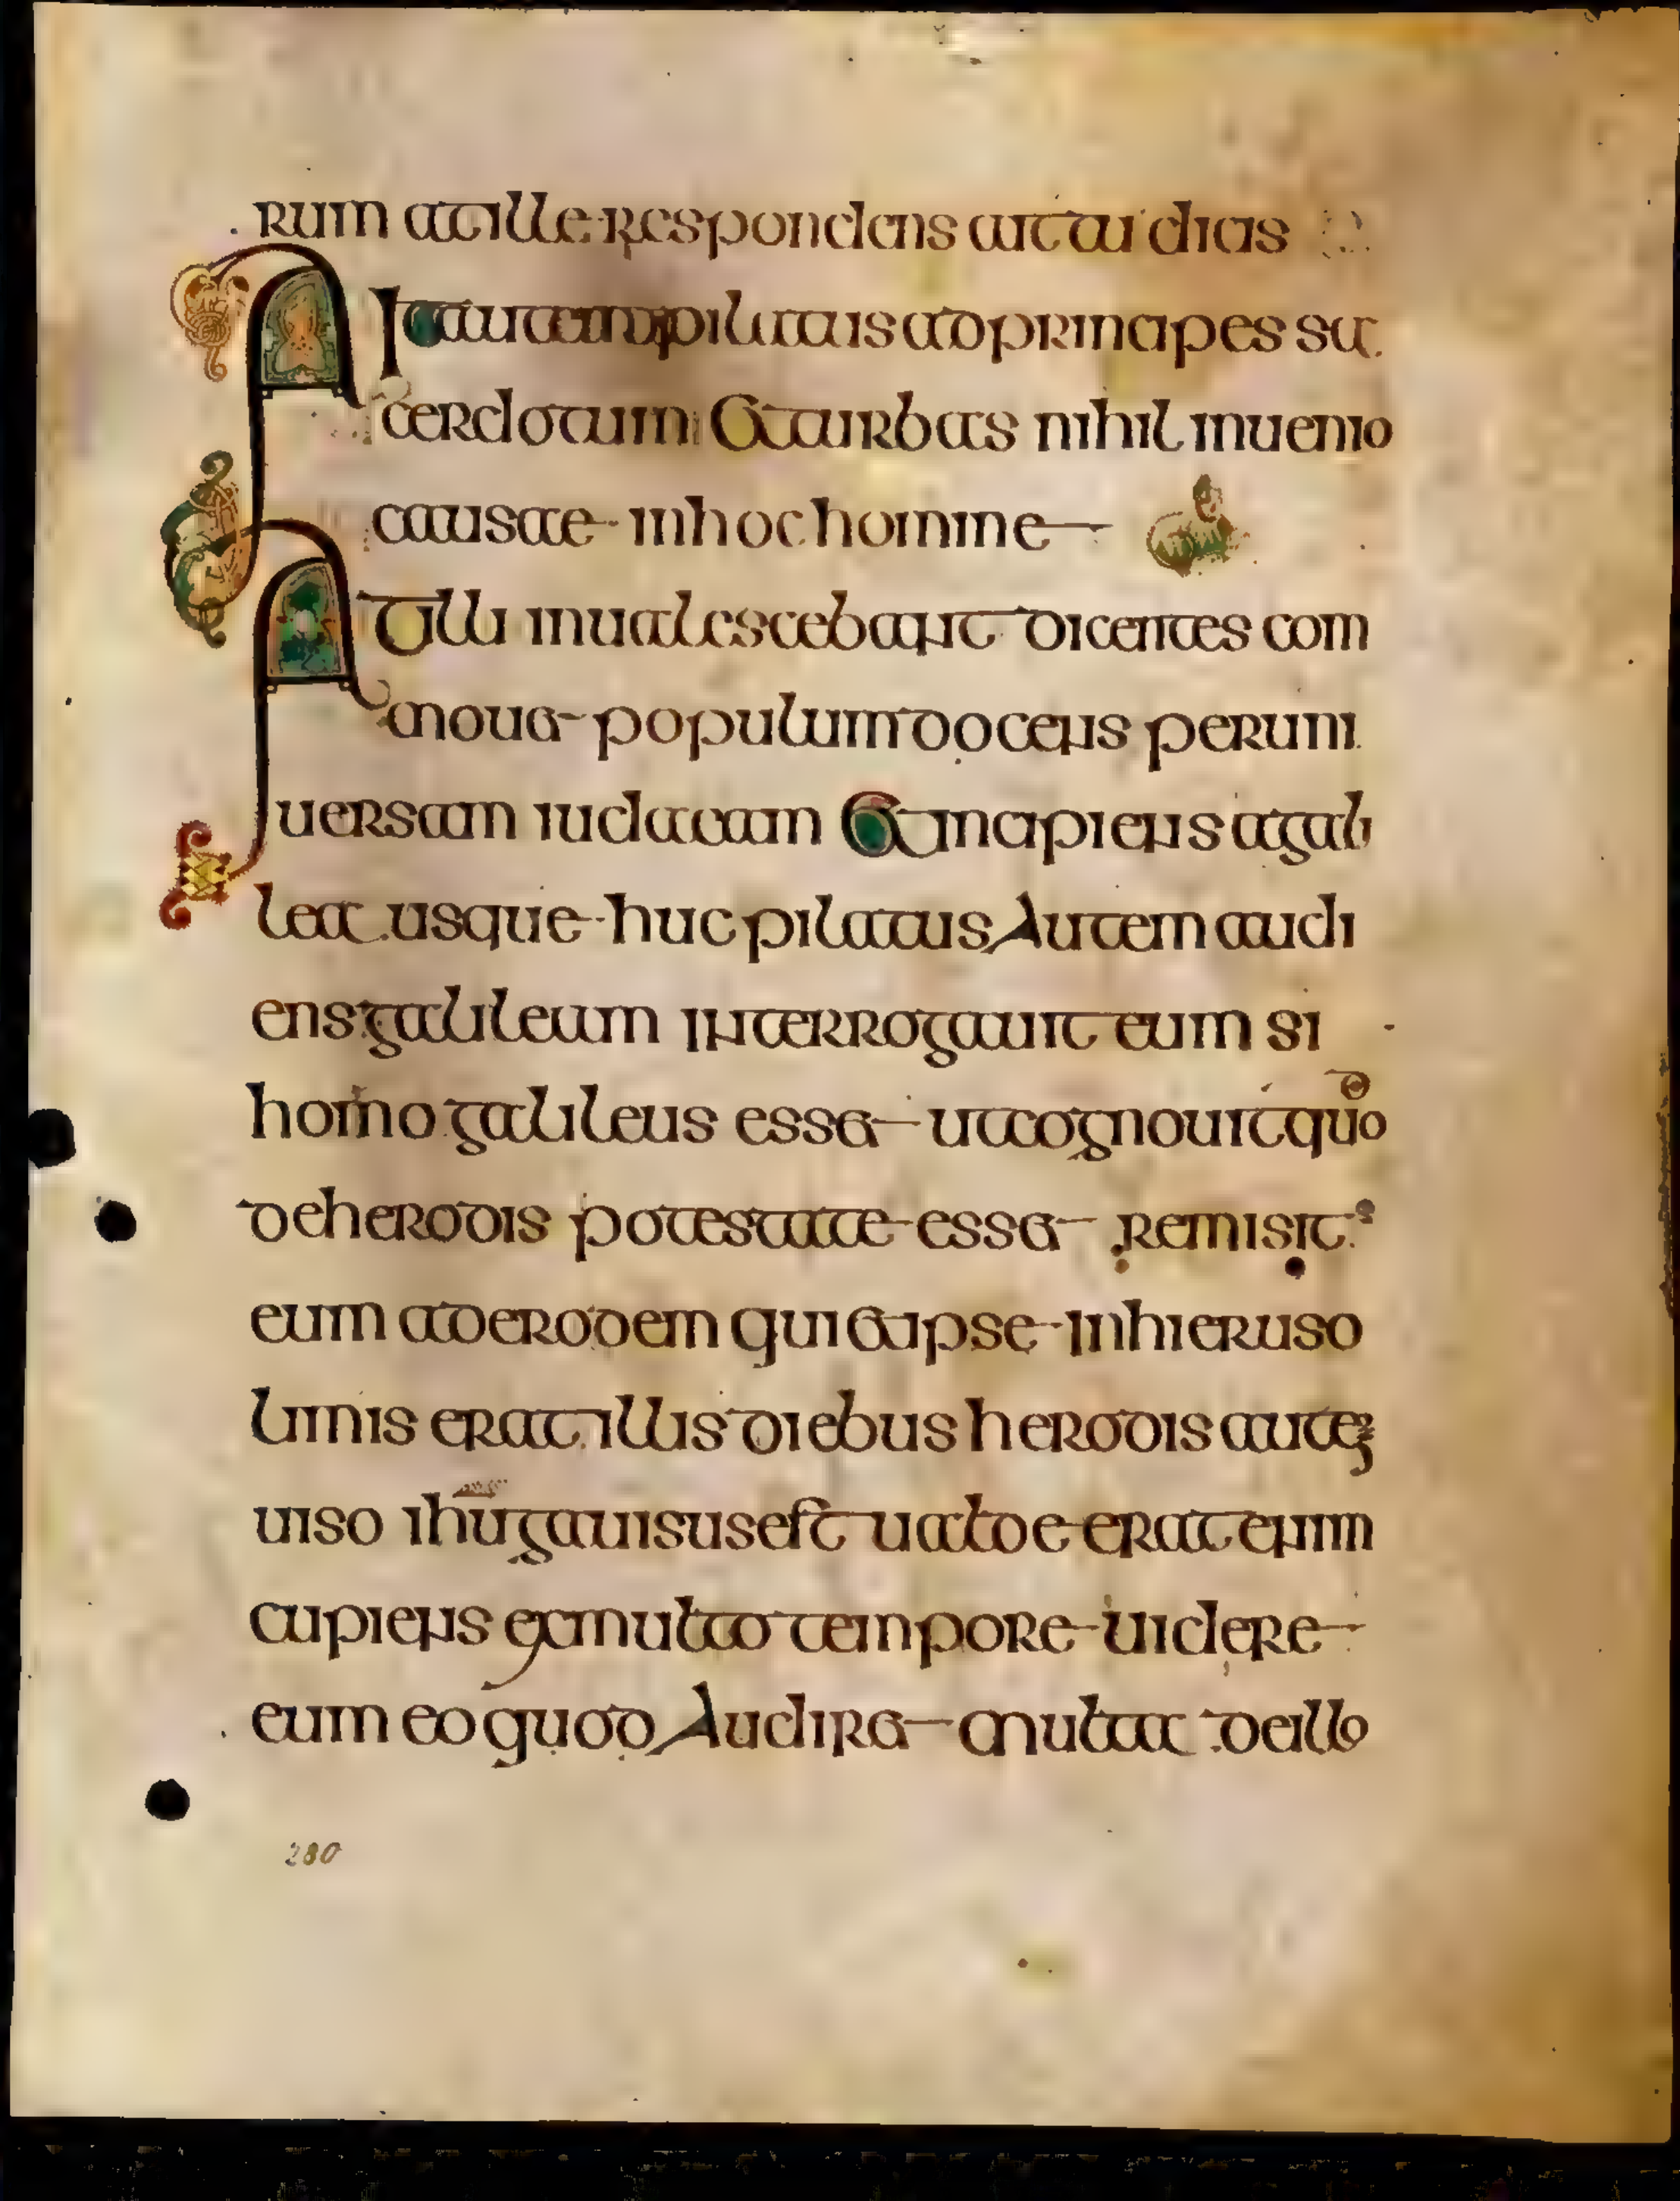 rum at ille respondens ait tu dicis
Ait autem pilatus ad principes sa
cerdotum et turbas nihil inuenio
causae in hoc homine
At illi inualescebant dicentes com
mouet populum docens per uni
uersam iudaeam et incipiens a gali
lea usque huc pilatus autem audi
ens galileum interrogauit eum si
homo galileus esset ut cognouit quod
de herodis potestate esset remisit
eum ad erodem qui et ipse in hieruso
limis erat illis diebus herodis autem
uiso ihu gauisus est ualde erat enim
cupiens ex multo tempore uidere
eum eo quod audiret multa de illo
280